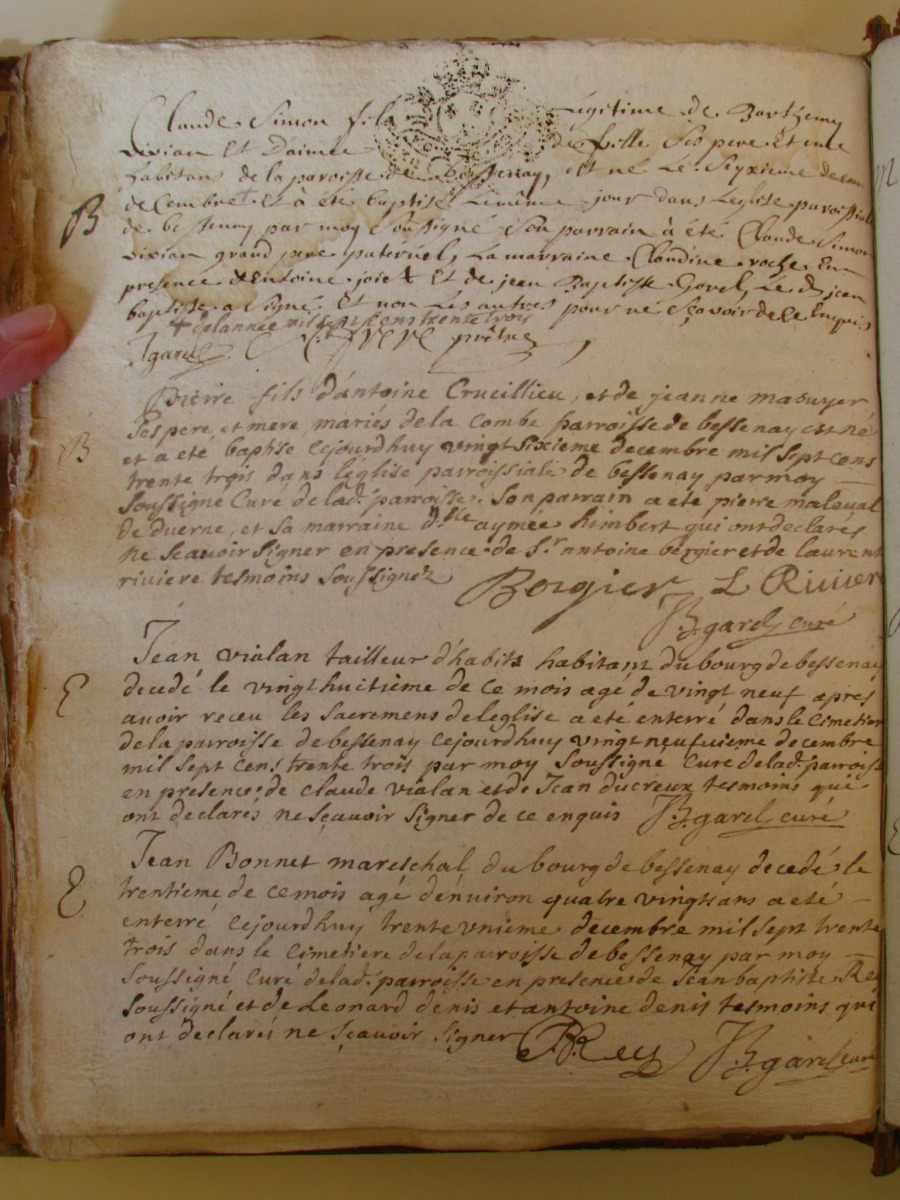 Claude Simon fils légitime de Barthemy
vivian Et Daimée de fville Ses pere Et mere
habitans de la paroisse de Bessenay, est né Le Seyxieme de
B
decembre + Et à été baptisé Le même jour dans Leglise paroissial
de bessenay par moy Soussigné Son parrain à été Claude Simon
vivian grand pere paternel, La marraine Claudine roche En
presence d'Entoine joiet Et de jean Baptiste Garel, Le d. jean
baptise a Signé Et non Les autres pour né Sçavoir de ce Enquis
+ de lannée mil sept cens trente trois
J garel prêtre
Pierre fils d'antoine Crucillieu, et de jeanne masuyer
B
ses pere, et mere, mariés de la Combe parroisse de bessenay est né
et a eté baptisé cejourdhuy vingt sixieme decembre mil sept cens
trente trois dans leglise parroissiale de bessenay par moy
soussigné Curé de lad. parroisse. Son parrain a eté pierre maleval
de duerne, et sa marraine d.lle aymée himbert qui ont declarés
ne scauoir signer en presence de S.r antoine bergier et de laurent
riviere tesmoins soussignéz Bergier L Riuiere
JB. garel curé
Jean vialan tailleur d'habits habitant du bourg de bessenay
E
decedé le vingt huitième de ce mois agé de vingt neuf apres
auoir receu les sacremens de leglise a eté enterré dans le cimetier
de la parroisse de bessenay cejourdhuy vingt neufuieme decembre
mil sept cens trente trois par moy soussigné curé de lad. parroiss
en présence de claude vialan et de Jean ducreux tesmoins qui
ont declarés ne sçauoir signer de ce enquis JB. garel curé
Jean Bonnet mareschal du bourg de bessenay decedé le
E
trentieme de ce mois agé dénuiron quatre vingts ans a eté
enterré cejourdhuy trente vnième decembre mil sept trente
trois dans le cimetiere de la paroisse de bessenay par moy
soussigné curé de lad. parroisse en presence de Jean baptiste Rey
soussigné et de Leonard denis et antoine denis tesmoins qui
ont declarés ne sçauoir signer Rey JB. garel curé